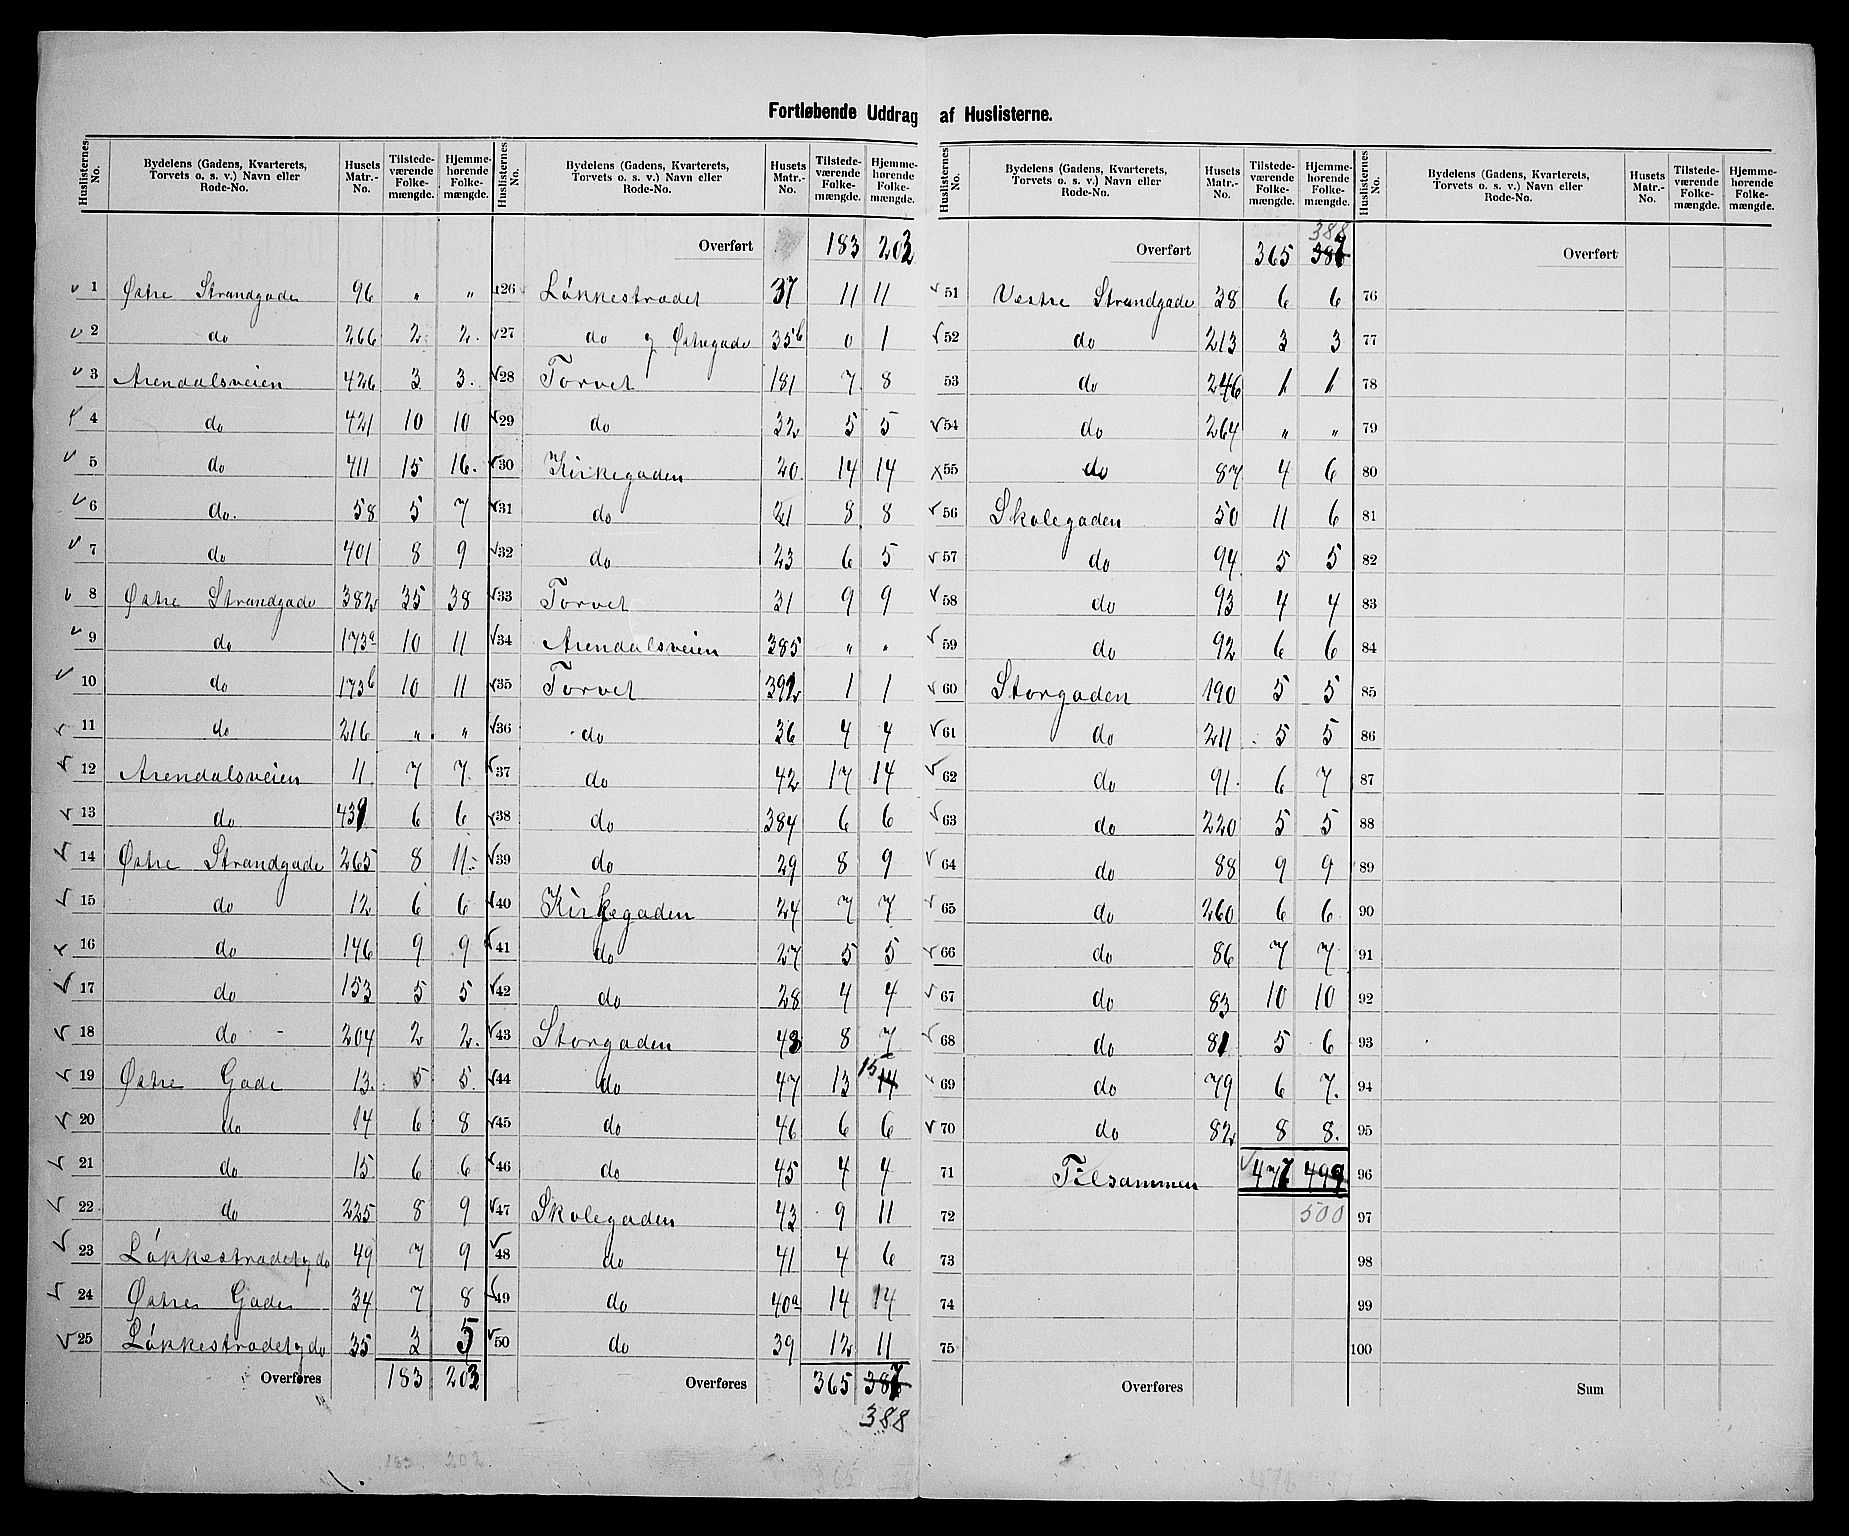 Fortløbende Uddrag af Huslisterne.
Huslisternes No. | Bydelens (Gadens, Kvarterets, Torvets o. s. v.) Navn eller Rode-No. | Husets Matr.-No. | Tilstedeværende Folkemængde. | Hjemmehørende Folkemængde.
1 Østre Strandgade 96 „ „
2 do 266 2 2.
3 Arendalsveien 426 3 3.
4 do 421 10 10
5 do 411 15 16.
6 do. 58 5 7
7 do 401 8 9
8 Østre Strandgade 382 35 38
9 do 173a 10 11
10 do 173b 10 11
11 do 216 „ „
12 Arendalsveien 11 7 7.
13 do 431 6 6
14 Østre Strandgade 265 8 11
15 do 12 6 6
16 do 146 9 9
17 do 153 5 5
18 do 204 2 2.
19 Østre Gade 13. 5 5.
20 do 14 6 8
21 do 15 6 6
22 do 225 8 9
23 Løkkestrædet g do 49 7 9
24 Østre Gade 34 7 8
25 Løkkestrædet g do 35 3 5
Overføres 183 203
183 202
Huslisternes No. | Bydelens (Gadens, Kvarterets, Torvets o. s. v.) Navn eller Rode-No. | Husets Matr.-No. | Tilstedeværende Folkemængde. | Hjemmehørende Folkemængde.
Overført 183 203
26 Løkkestrædet 37 11 11
27 do og Østregade 35b 0 1
28 Torvet 181 7 8
29 do 32 5 5
30 Kirkegaden 20 14 14
31 do 21 8 8
32 do 23 6 5
33 Torvet 31 9 9
34 Arendalsveien 385 „ „
35 Torvet 392 1 1
36 do 36 4 4
37 do 42 17 14
38 do 384 6 6
39 do 29 8 9
40 Kirkegaden 24 7 7
41 do 27 5 5
42 do 28 4 4
43 Storgaden 48 8 7
44 do 47 13 14 15
45 do 46 6 6
46 do 45 4 4
47 Skolegaden 43 9 11
48 do 41 4 6
49 do 40a 14 14
50 do 39 12 11
Overføres 365 387
388
365
Huslisternes No. | Bydelens (Gadens, Kvarterets, Torvets o. s. v.) Navn eller Rode-No. | Husets Matr.-No. | Tilstedeværende Folkemængde. | Hjemmehørende Folkemængde.
388
Overført 365 387
51 Vestre Strandgade 38 6 6
52 do 213 3 3
53 do 246 1 1
54 do 264 „ „
55 do 87 4 6
56 Skolegaden 50 11 6
57 do 94 5 5
58 do 93 4 4
59 do 92 6 6
60 Storgaden 190 5 5
61 do 211 5 5
62 do 91 6 7
63 do 220 5 5
64 do 88 9 9
65 do 260 6 6
66 do 86 7 7
67 do 83 10 10
68 do 81 5 6
69 do 79 6 7.
70 do 82 8 8.
71 Tilsammen 477 499
72 500
73
74
75
Overføres
476
Huslisternes No. | Bydelens (Gadens, Kvarterets, Torvets o. s. v.) Navn eller Rode-No. | Husets Matr.-No. | Tilstedeværende Folkemængde. | Hjemmehørende Folkemængde.
Overført
76
77
78
79
80
81
82
83
84
85
86
87
88
89
90
91
92
93
94
95
96
97
98
99
100
Sum